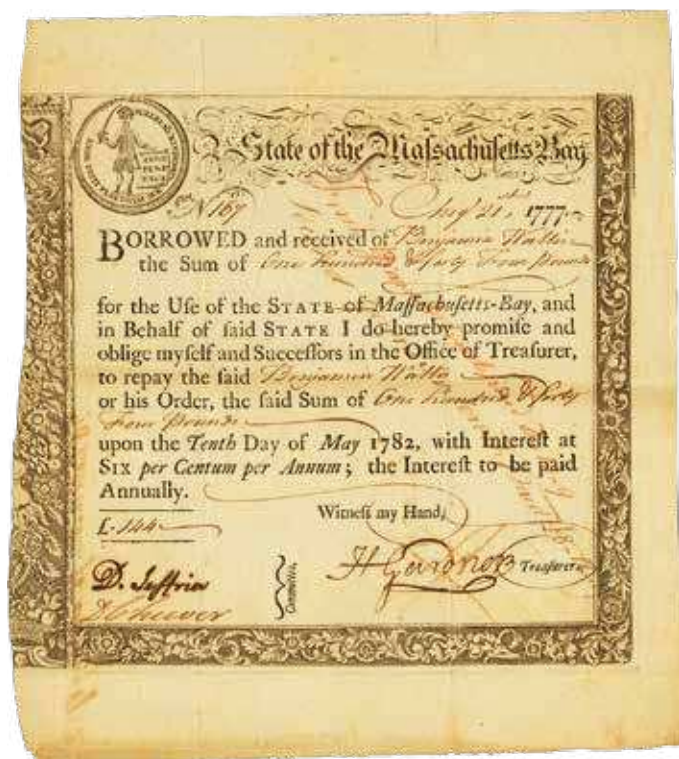 State of the Maſsachuſetts Bay
N 167 Augt 21st 1777
BORROWED and received of Benjamin Wattle
the Sum of One hundred & forty four pounds
for the Uſe of the STATE of Maſſachuſetts-Bay, and
in Behalf of ſaid STATE I do hereby promiſe and
oblige myſelf and Succeſſors in the Office of Treaſurer,
to repay the ſaid Benjamin Wattle
or his Order, the ſaid Sum of One hundred & forty
four pounds
upon the Tenth Day of May 1782, with Intereſt at
SIX per Centum per Annum; the Intereſt to be paid
Annually.
£. 144 Witneſs my Hand,
D. Jeffries Committee. H Gardner Treaſurer.